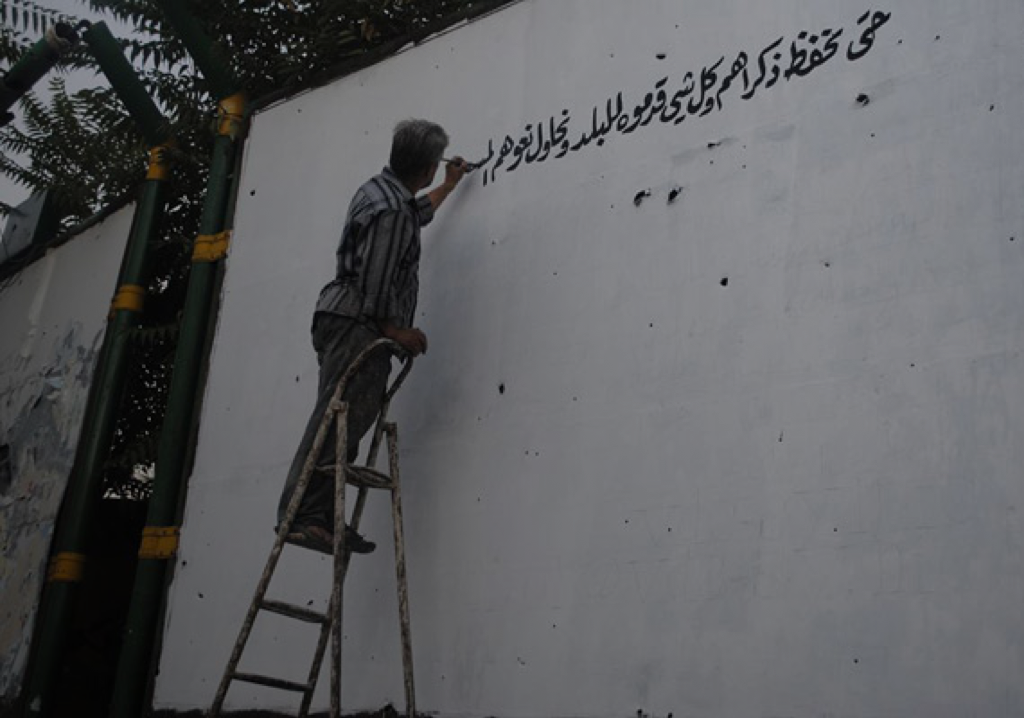 حتى نحفظ ذكراهم وكل شي قدموه للبلد ونحاول نعوهم الم